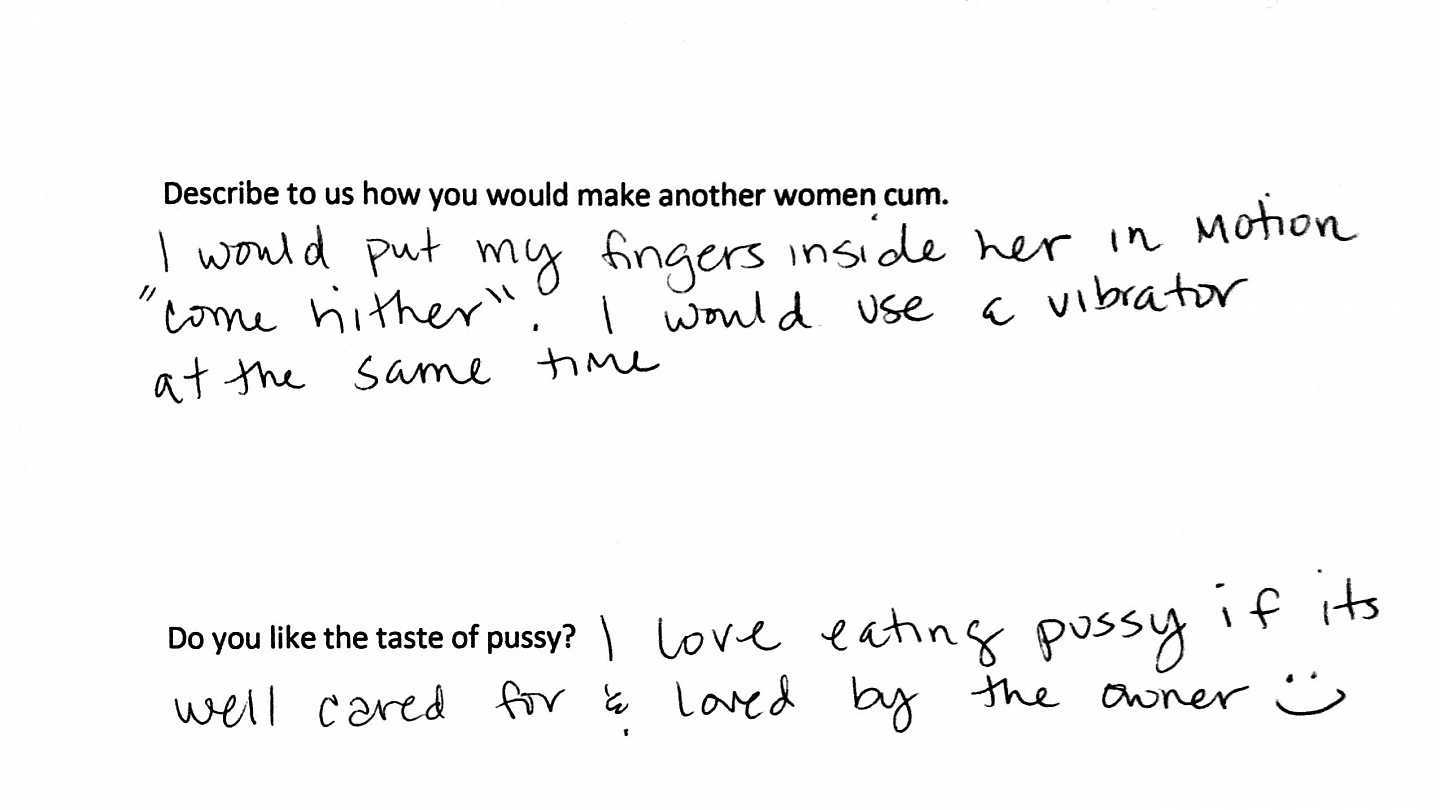 Describe to us how you would make another women cum.
I would put my fingers inside her in motion
"come hither". I would use a vibrator
at the same time
Do you like the taste of pussy? I love eating pussy if its
well cared for & loved by the owner :)